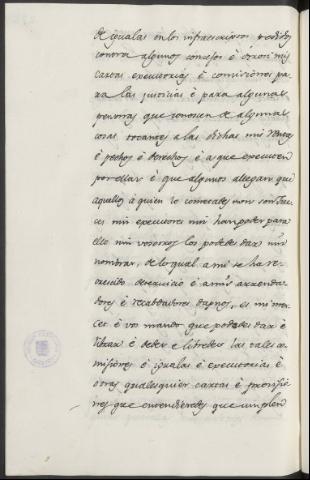 de igualas en los infrascriptos pedidos
contra algunos conceſos é dirori mis
cartas executorias é comisiones pa
ra las justicias é para algunas
personas que conoscen de algunas
cosas tocantes a las dichas mis Rentas
é pechos é derechos é a que executen
por ellas é que algunos allegan que
aquellos á quien lo cometedes non son Jue
ces nin executores nin han poder para
ello nin vosotros los podedes dar nin
nombrar, de lo qual á mi se ha re
crescido deservicio é a mis arrenda
dores é recabdadores daños, es mi mer
cet é vos mando que podades dar é
librar é dedes é libredes las tales co
misiones é igualas é executorias é
otras qualesquier cartas é provisio
nes que entendieredes que cumplen